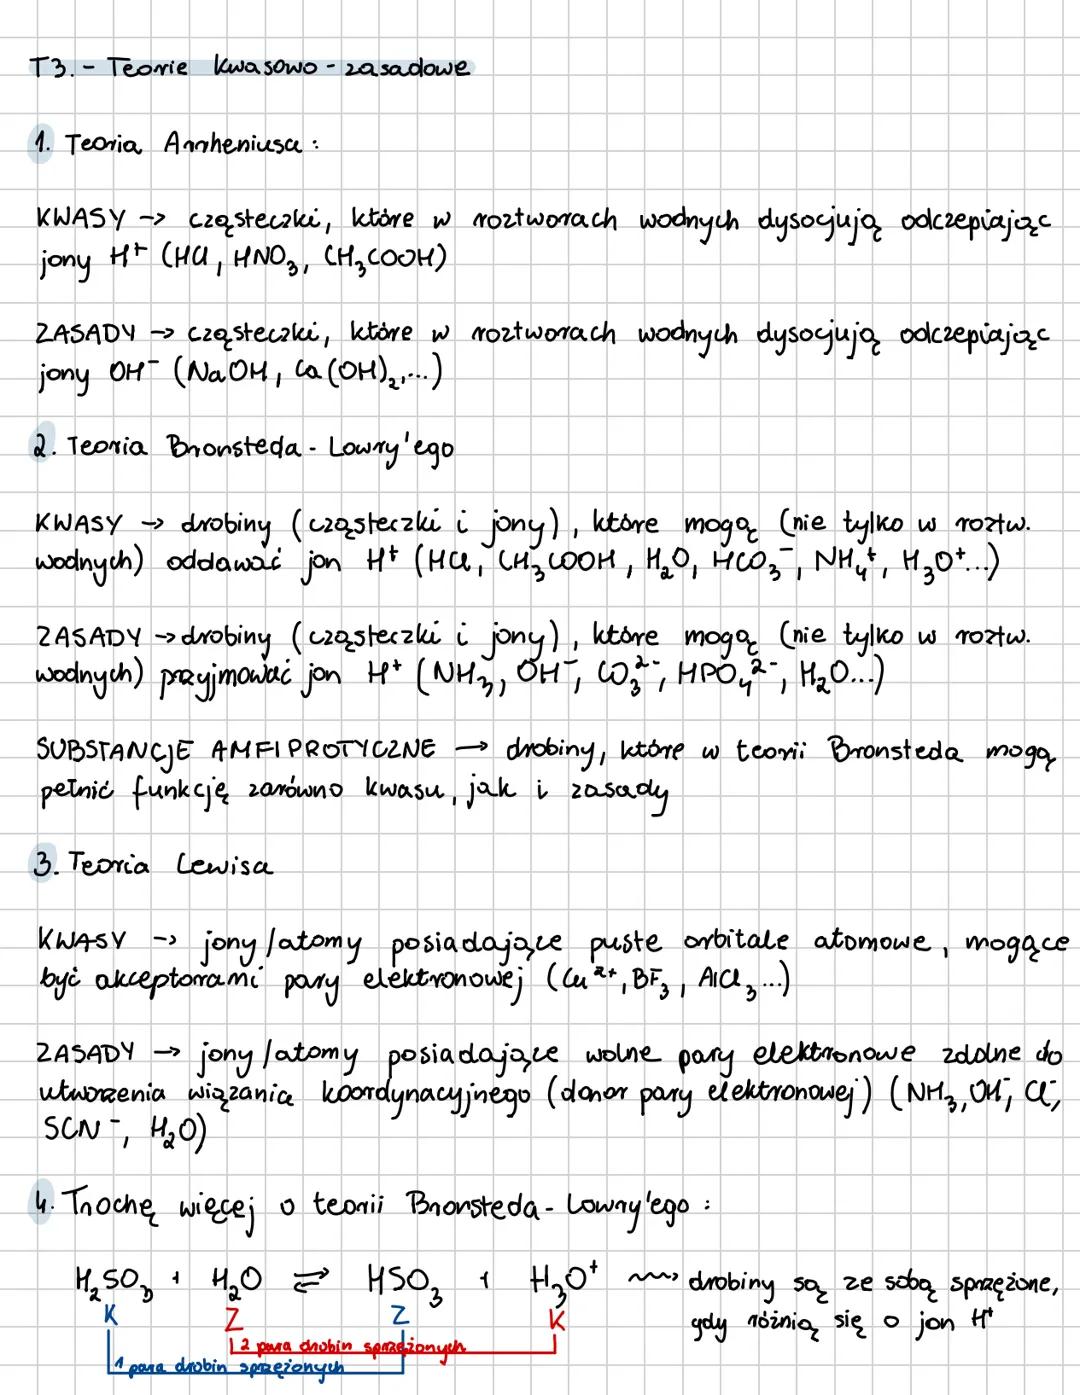 T3. - Teorie kwasowo - zasadowe
1. Teoria Arrheniusa :
KWASY -> cząsteczki, które w roztworach wodnych dysocjują odczepiając
jony H⁺ (HCl, HNO₃, CH₃COOH)
ZASADY -> cząsteczki, które w roztworach wodnych dysocjują odczepiając
jony OH⁻ (NaOH, Ca(OH)₂,...)
2. Teoria Bronsteda - Lowry'ego
KWASY -> drobiny (cząsteczki i jony), które mogą (nie tylko w roztw.
wodnych) oddawać jon H⁺ (HCl, CH₃COOH, H₂O, HCO₃⁻, NH₄⁺, H₃O⁺...)
ZASADY -> drobiny (cząsteczki i jony), które mogą (nie tylko w roztw.
wodnych) przyjmować jon H⁺ (NH₃, OH⁻, CO₃²⁻, HPO₄²⁻, H₂O...)
SUBSTANCJE AMFIPROTYCZNE -> drobiny, które w teorii Bronsteda mogą
pełnić funkcję zarówno kwasu, jak i zasady
3. Teoria Lewisa
KWASY -> jony/atomy posiadające puste orbitale atomowe, mogące
być akceptorami pary elektronowej (Cu²⁺, BF₃, AlCl₃...)
ZASADY -> jony/atomy posiadające wolne pary elektronowe zdolne do
utworzenia wiązania koordynacyjnego (donor pary elektronowej) (NH₃, OH⁻, Cl⁻,
SCN⁻, H₂O)
4. Trochę więcej o teorii Bronsteda - Lowry'ego :
H₂SO₃ + H₂O ⇌ HSO₃ + H₃O⁺ ⇝ drobiny są ze sobą sprzężone,
K Z Z K gdy różnią się o jon H⁺
2 para drobin sprzężonych
1 para drobin sprzężonych